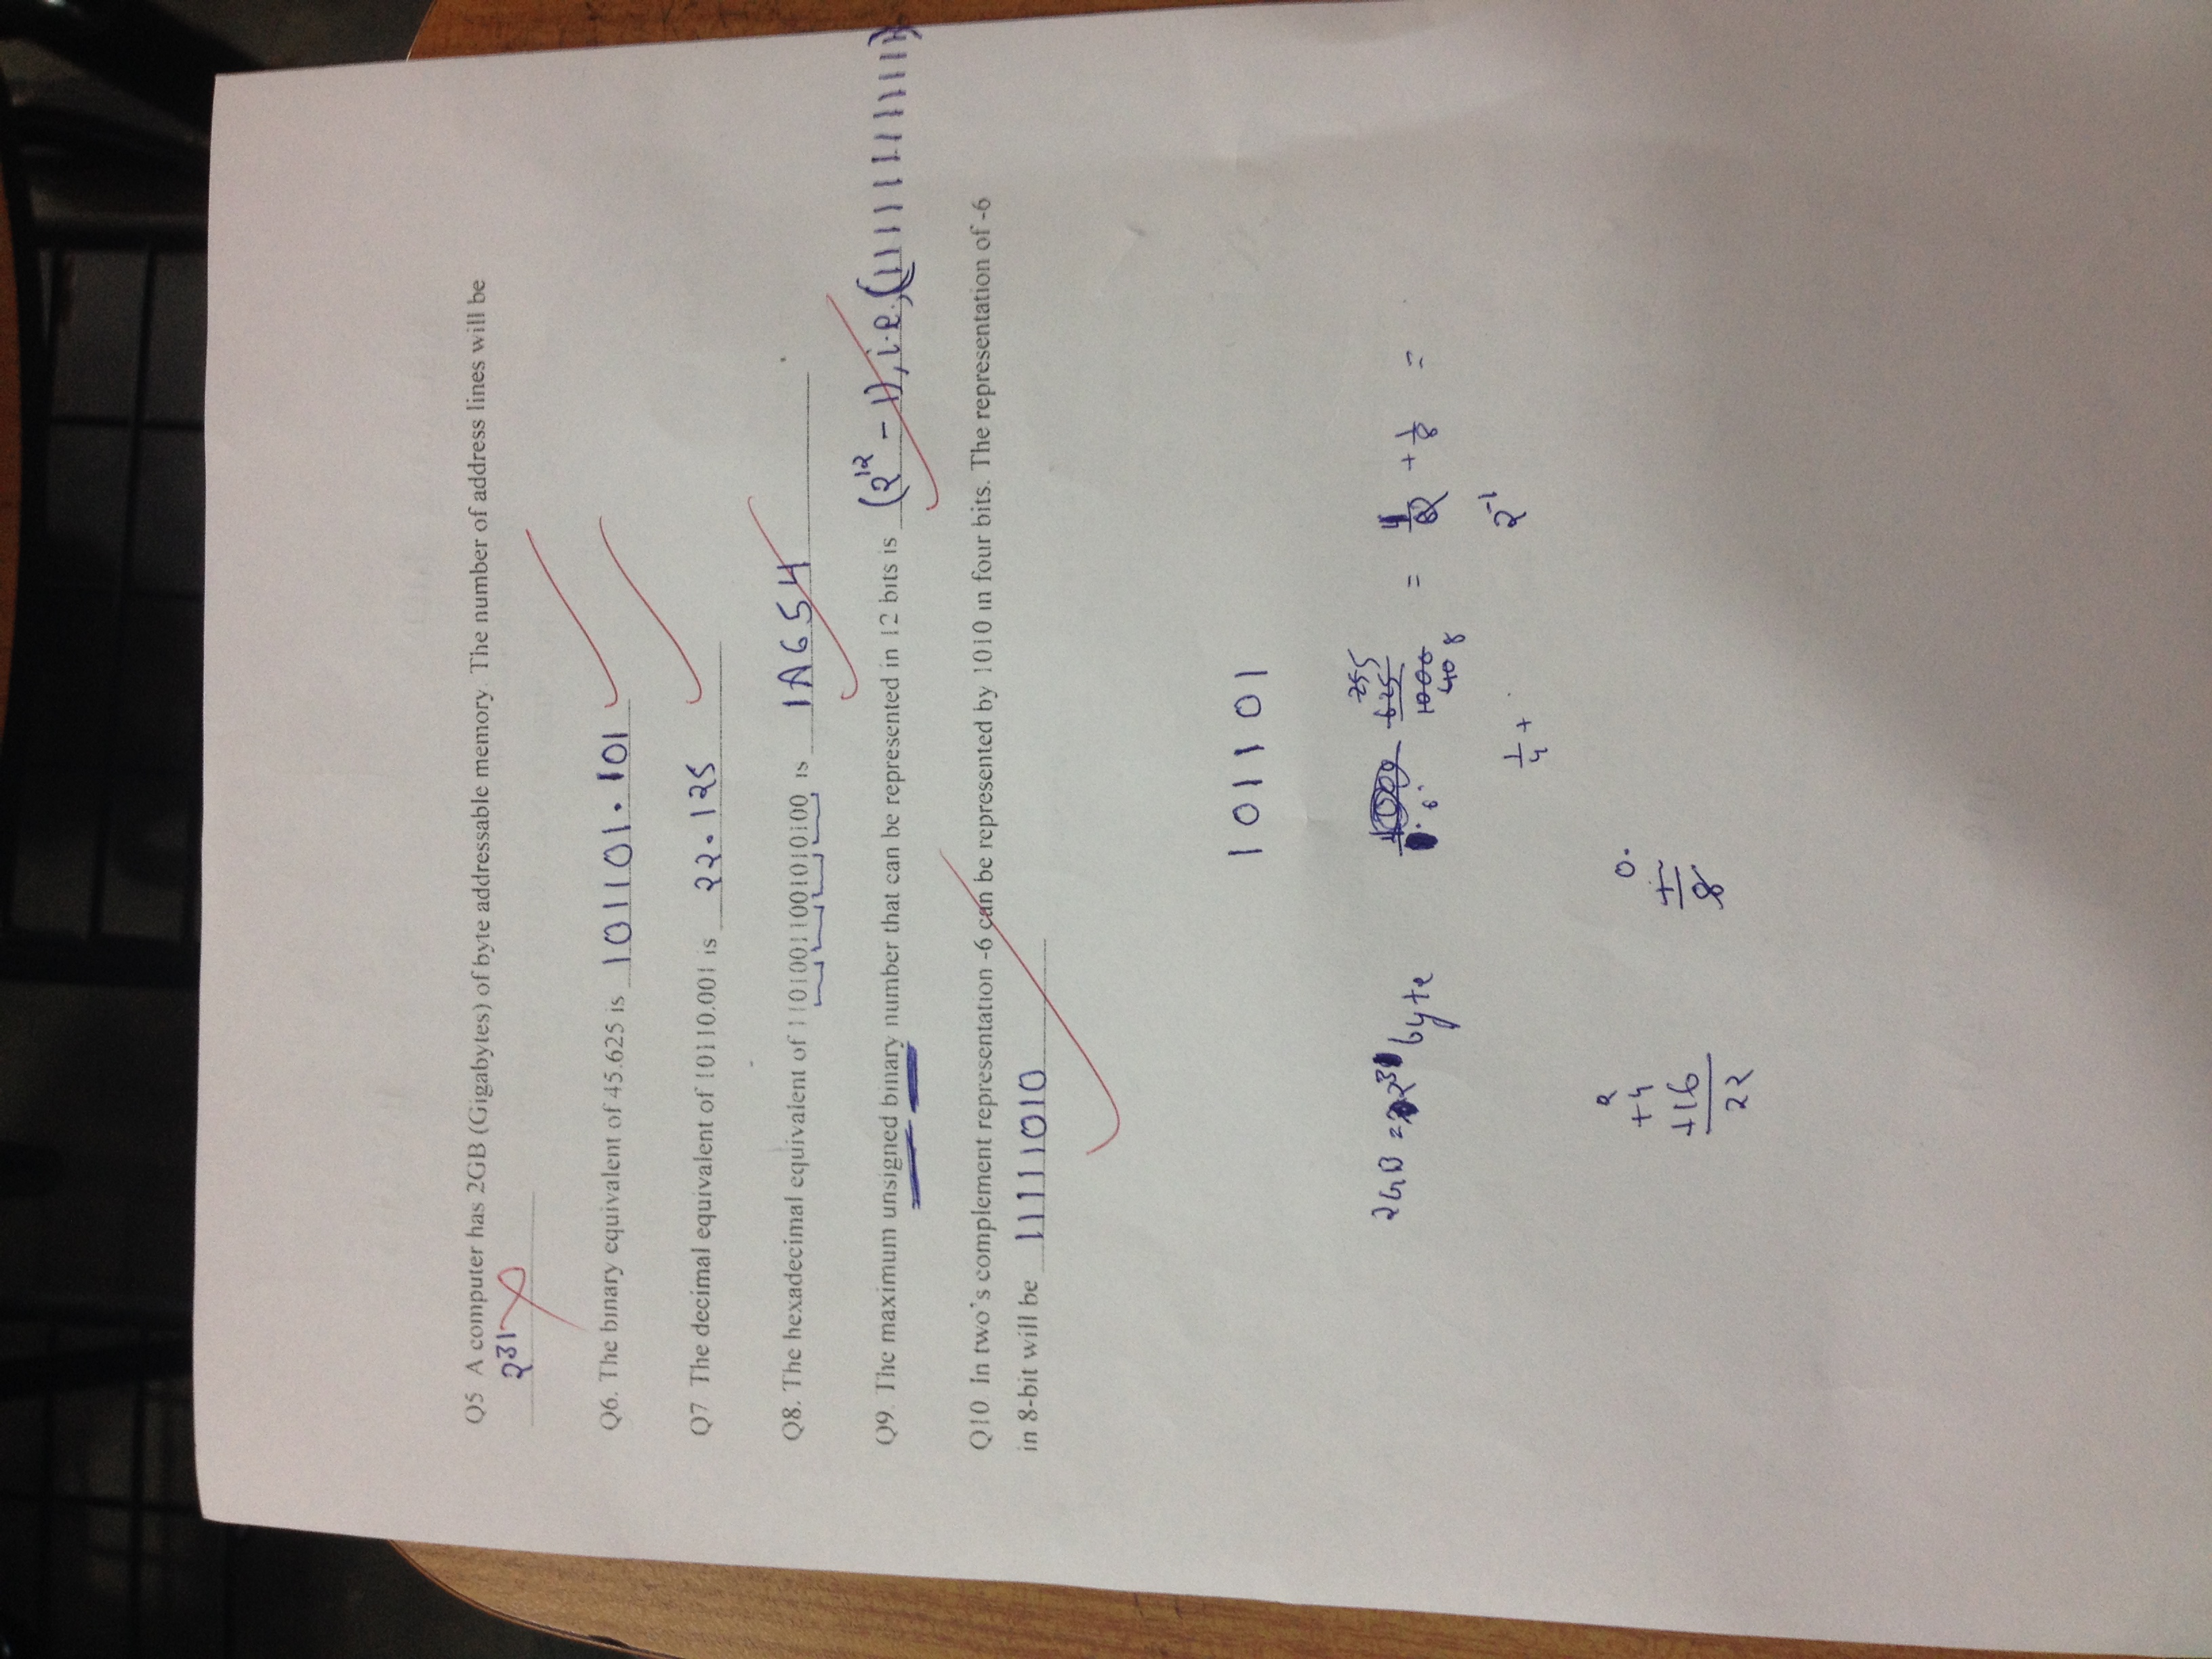 Q5 A computer has 2GB (Gigabytes) of byte addressable memory. The number of address lines will be
2^31
Q6. The binary equivalent of 45.625 is 101101.101
Q7 The decimal equivalent of 10110.001 is 22.125
Q8. The hexadecimal equivalent of 11010011001010100 is 1A654
Q9. The maximum unsigned binary number that can be represented in 12 bits is (2^12 - 1), i.e, (111111111111)
Q10 In two's complement representation -6 can be represented by 1010 in four bits. The representation of -6
in 8-bit will be 11111010
101101
2GB = 2^31 byte
625/1000 = 1/2 + 1/8 =
1/4 +
2^-1
2
+4
+16
22
0.
8